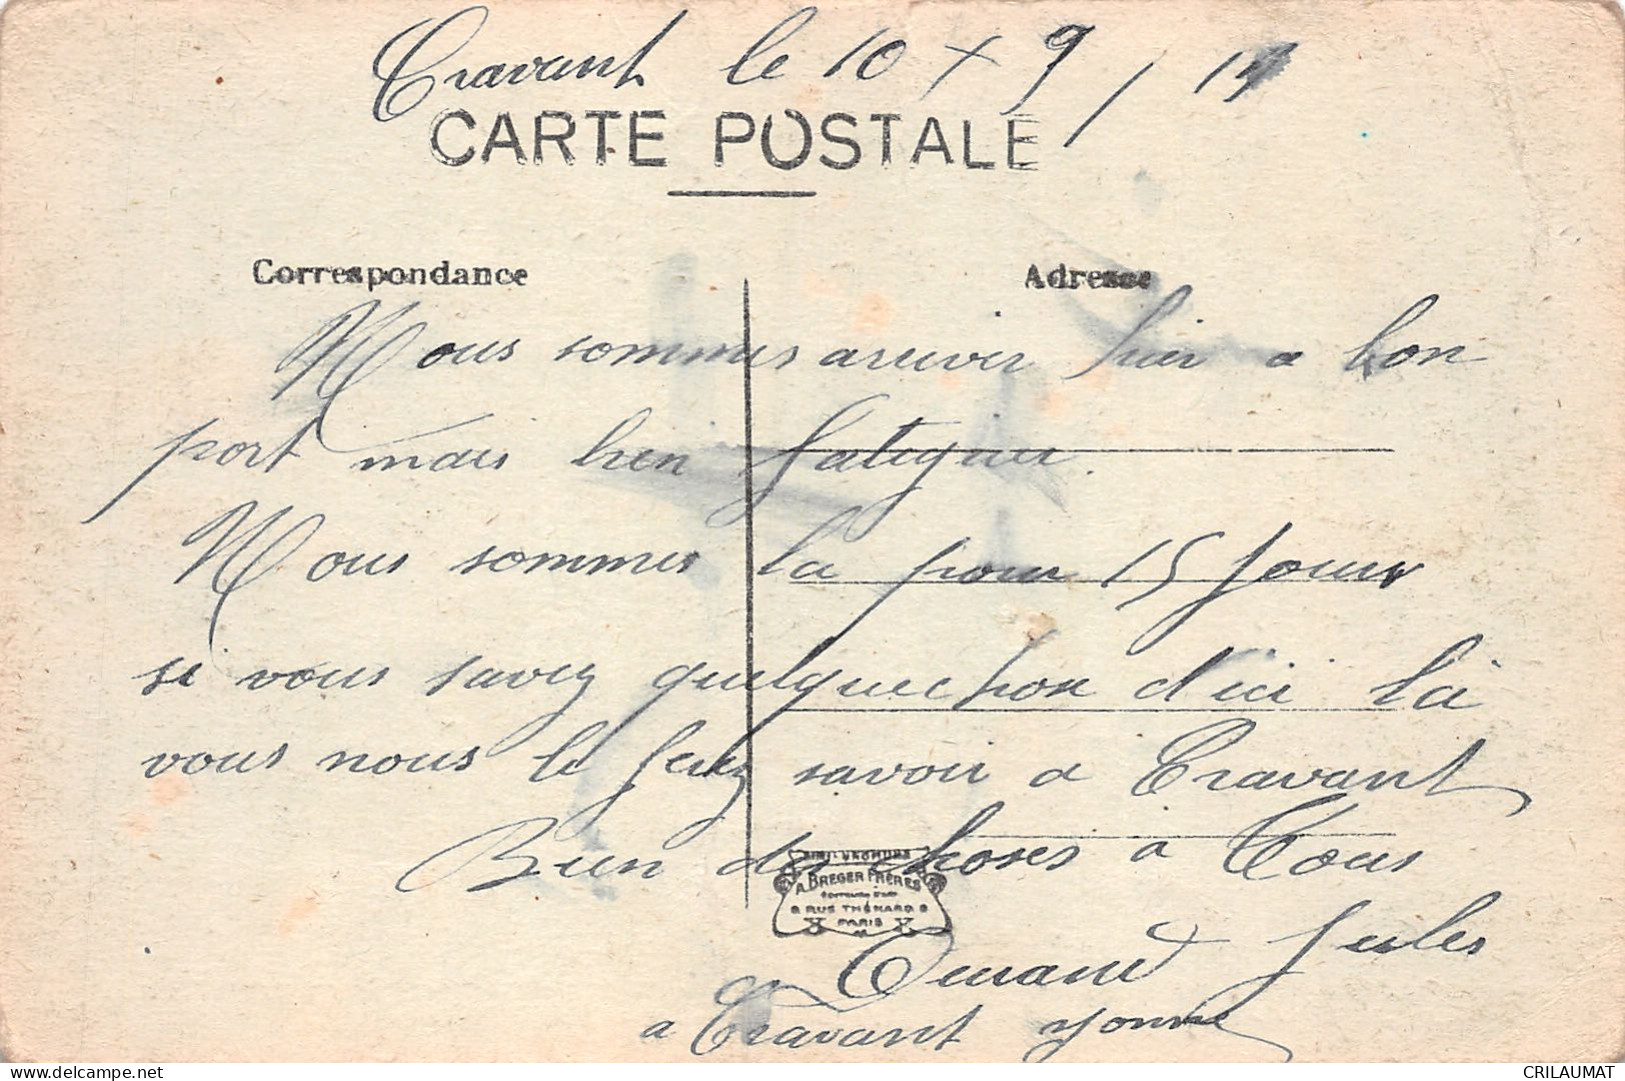 Cravant le 10 x 9 / 14
CARTE POSTALE
Correspondance
Adresse
Nous sommes arriver hier a bon
port mais bien fatiguer.
Nous sommes la pour 15 jours
si vous savez quelquechose d'ici là
vous nous le ferez savoir a Cravant
Bien des choses a Tous
A. BREGER FRÈRES
9 RUE THÉNARD 9
PARIS
Jules
a Cravant Yonne
delcampe.net
CRILAUMAT